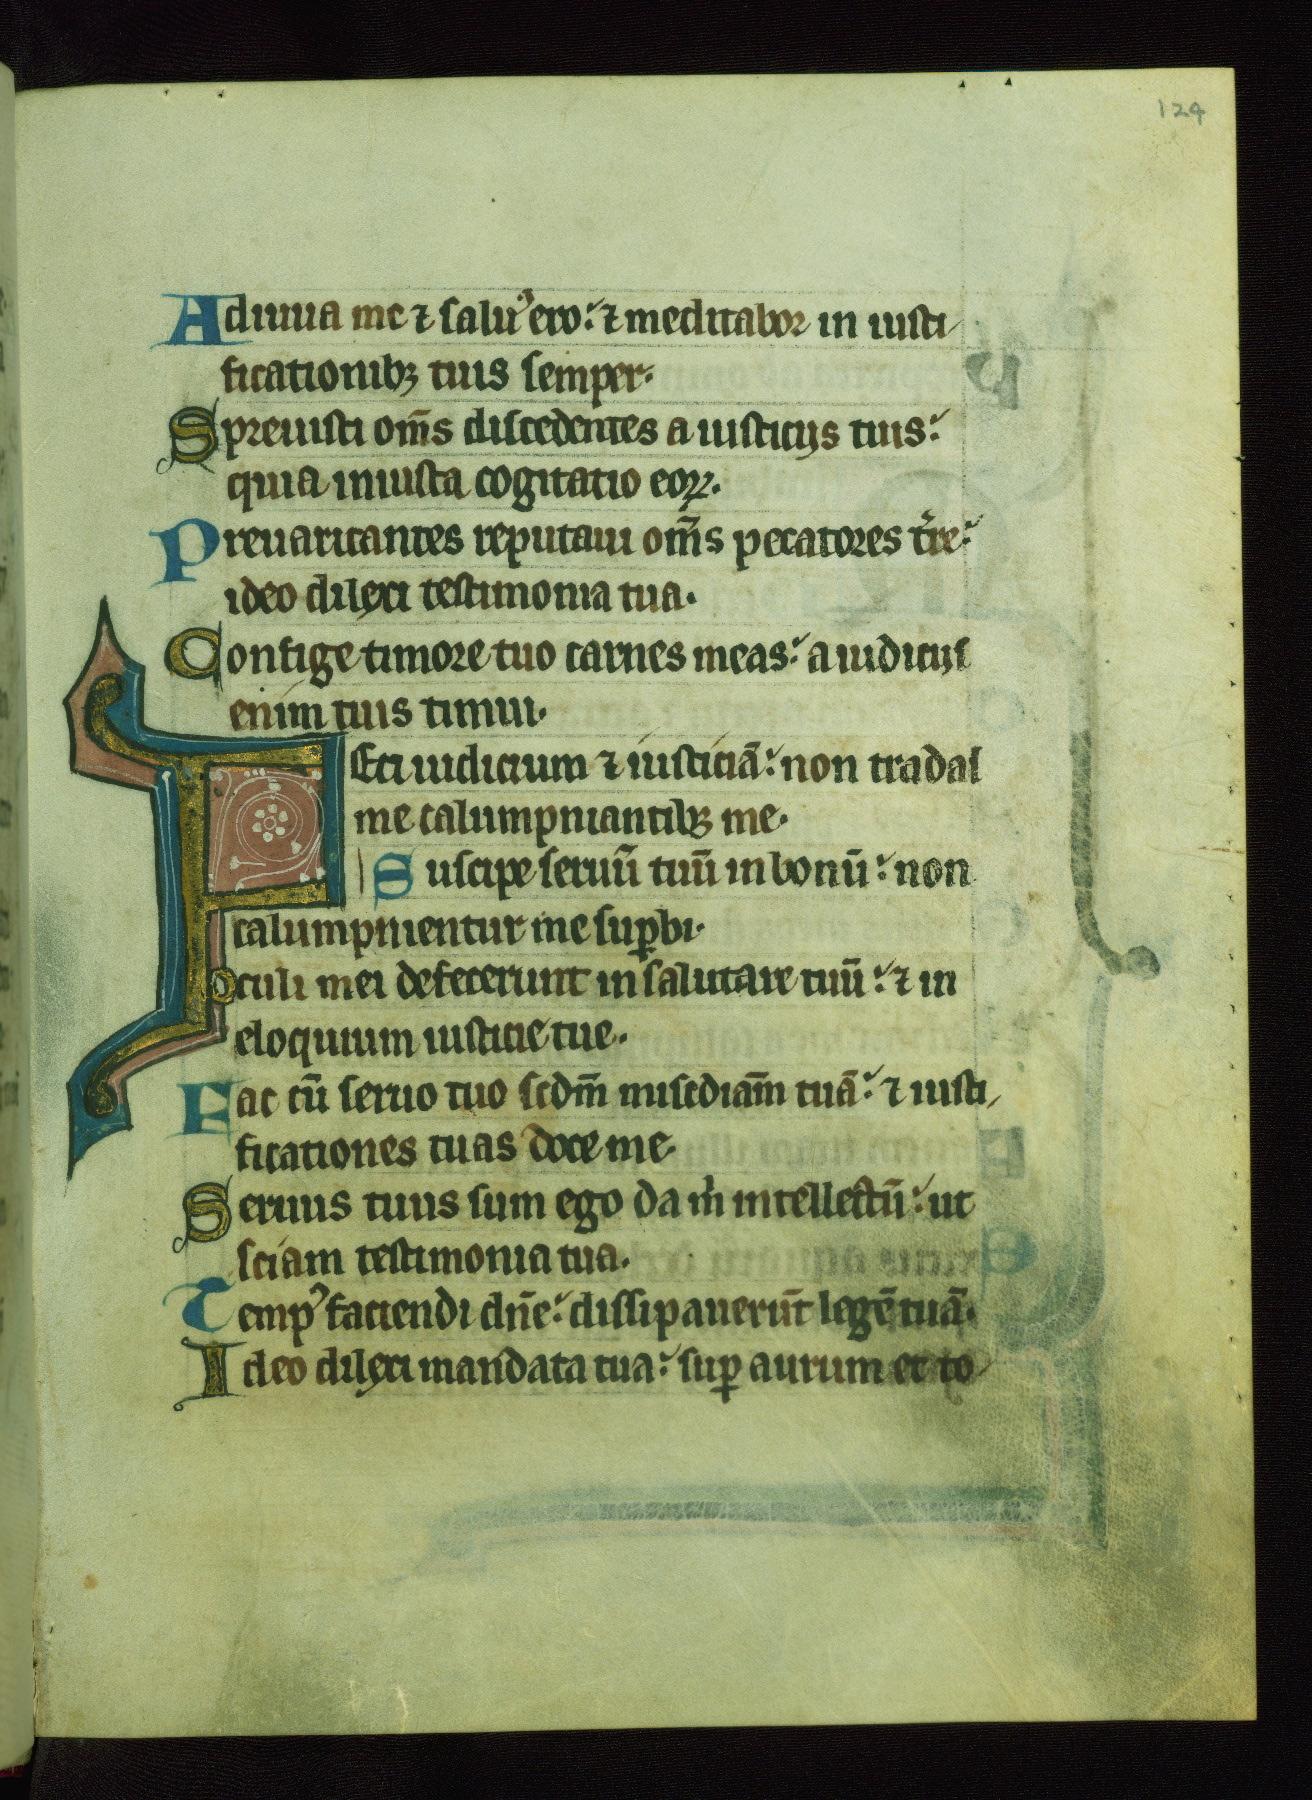 124
Adiuua me ⁊ saluꝰ ero: ⁊ meditabor in iusti
ficationibꝫ tuis semper.
Spreuisti om̃s discedentes a iusticijs tuis:
quia iniusta cogitatio eoꝝ.
Preuaricantes reputaui om̃s peccatores t̃re:
ideo dilexi testimonia tua.
Confige timore tuo carnes meas: a iudicijs
enim tuis timui.
Feci iudicium ⁊ iusticiā: non tradas
me calumpniantibꝫ me.
Suscipe seruū tuū in bonū: non
calumpnientur me suꝑbi.
Oculi mei defecerunt in salutare tuū: ⁊ in
eloquium iusticie tue.
Fac cū seruo tuo scdm̃ misc̄diam̄ tuā: ⁊ iusti
ficationes tuas doce me.
Seruus tuus sum ego da m̃ intellectū: ut
sciam testimonia tua.
Tempꝰ faciendi dñe: dissipauerūt legē tuā.
Ideo dilexi mandata tua: suꝑ aurum et to